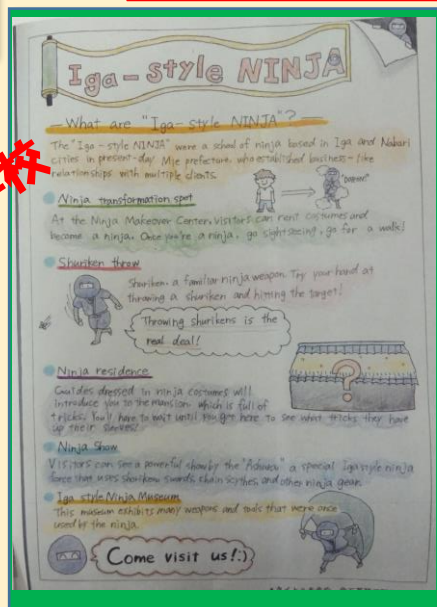 Iga-Style NINJA
What are "Iga-Style NINJA"?
The "Iga-style NINJA" were a school of ninja based in Iga and Nabari
cities in present-day Mie prefecture, who established business-like
relationships with multiple clients.
Ninja transformation spot
At the Ninja Makeover Center, visitors can rent costumes and
become a ninja. Once you're a ninja, go sightseeing, go for a walk!
Shuriken throw
Shuriken, a familiar ninja weapon. Try your hand at
throwing a shuriken and hitting the target!
Throwing shurikens is the
real deal!
Ninja residence
Guides dressed in ninja costumes will
introduce you to the mansion which is full of
tricks. You'll have to wait until you get here to see what tricks they have
up their sleeves!
Ninja Show
Visitors can see a powerful show by the a special Iga style ninja
force that uses shuriken, swords, chain scythes, and other ninja gear.
Iga style Ninja Museum
This museum exhibits many weapons and tools that were once
used by the ninja.
Come visit us!:)
校